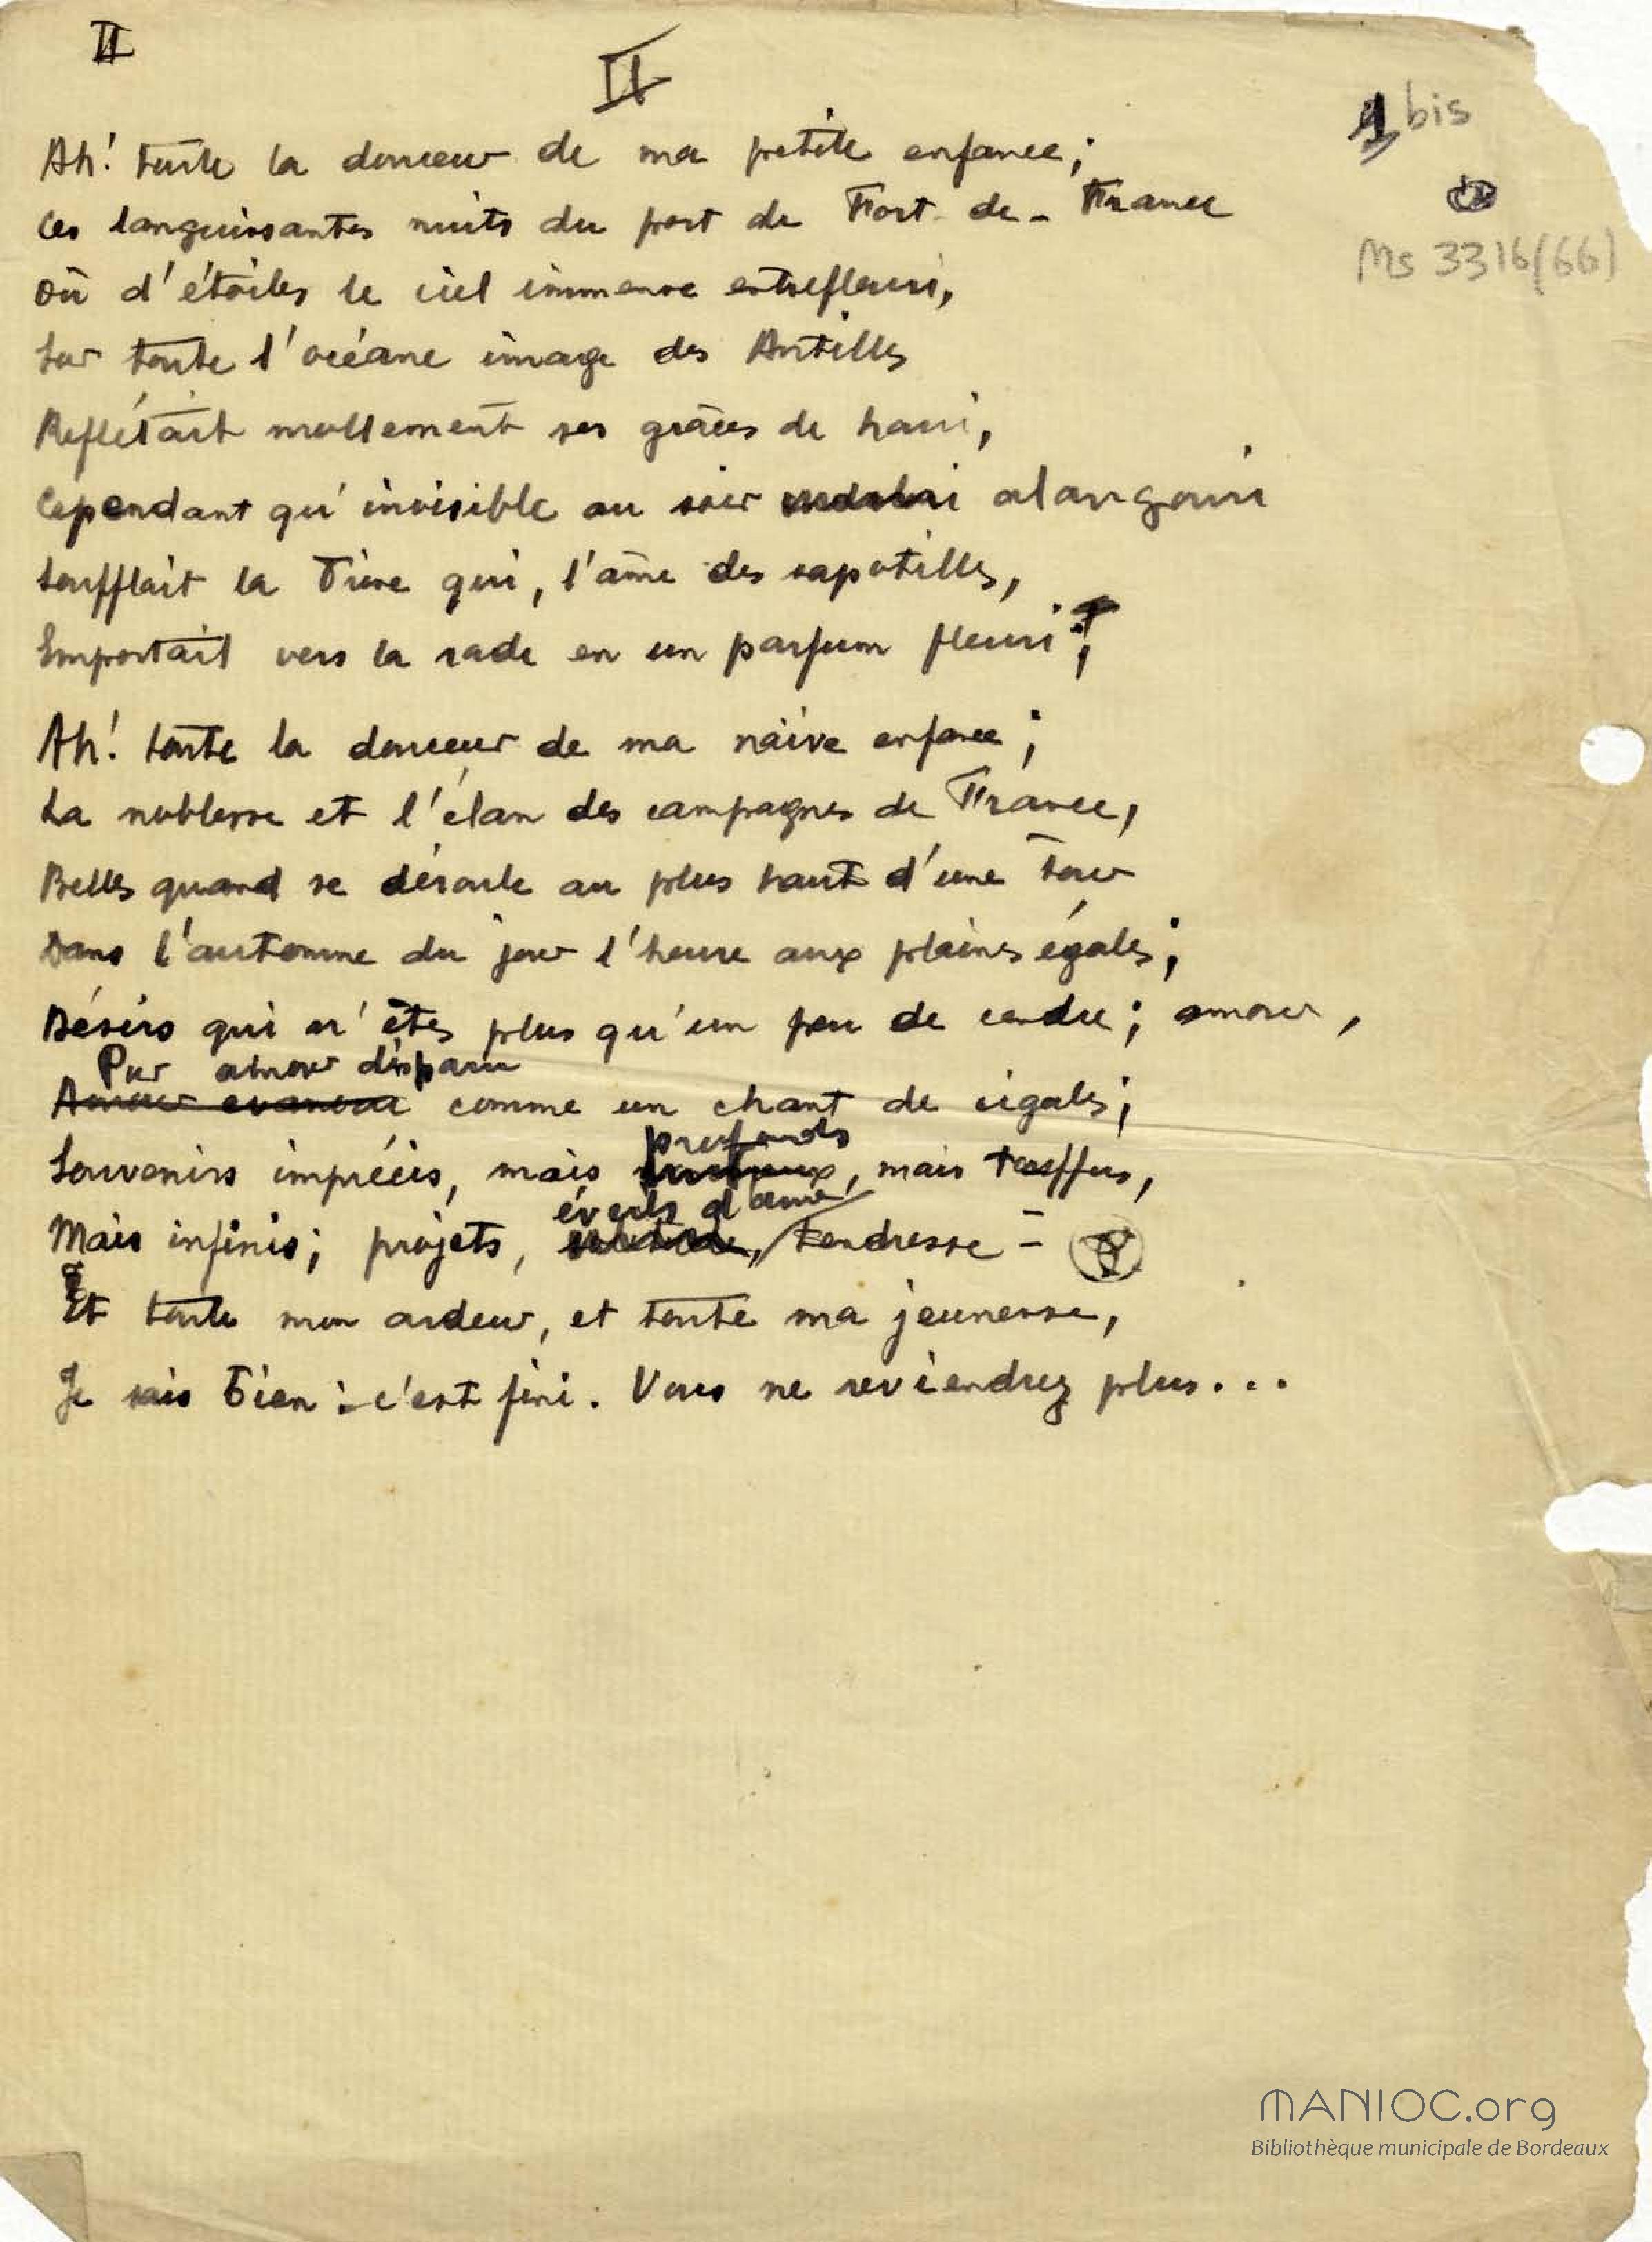 II
II
1 bis
Ms 3316(66)
Ah! toute la douceur de ma petite enfance;
Ces languissantes nuits du port de Fort-de-France
Où d'étoiles le ciel immense entrefleuri,
Sur toute l'océane image des Antilles
Reflétait mollement ses grâces de houri,
Cependant qu'invisible au soir alangouri
Soufflait la brise qui, l'âme des sapotilles,
Emportait vers la rade en un parfum fleuri;
Ah! toute la douceur de ma naïve enfance;
La noblesse et l'élan des campagnes de France,
Belles quand se déroule au plus haut d'une tour
Dans l'automne du jour l'heure aux plaines égales;
Désirs qui n'êtes plus qu'un peu de cendre; amour,
Pur amour disparu
Amour evanoui comme un chant de cigales;
profonds
Souvenirs imprécis, mais, mais touffus,
éveils d'âme
Mais infinis; projets, tendresse -
Et toute mon ardeur, et toute ma jeunesse,
Je sais bien : c'est fini. Vous ne reviendrez plus...
MANIOC.org
Bibliothèque municipale de Bordeaux